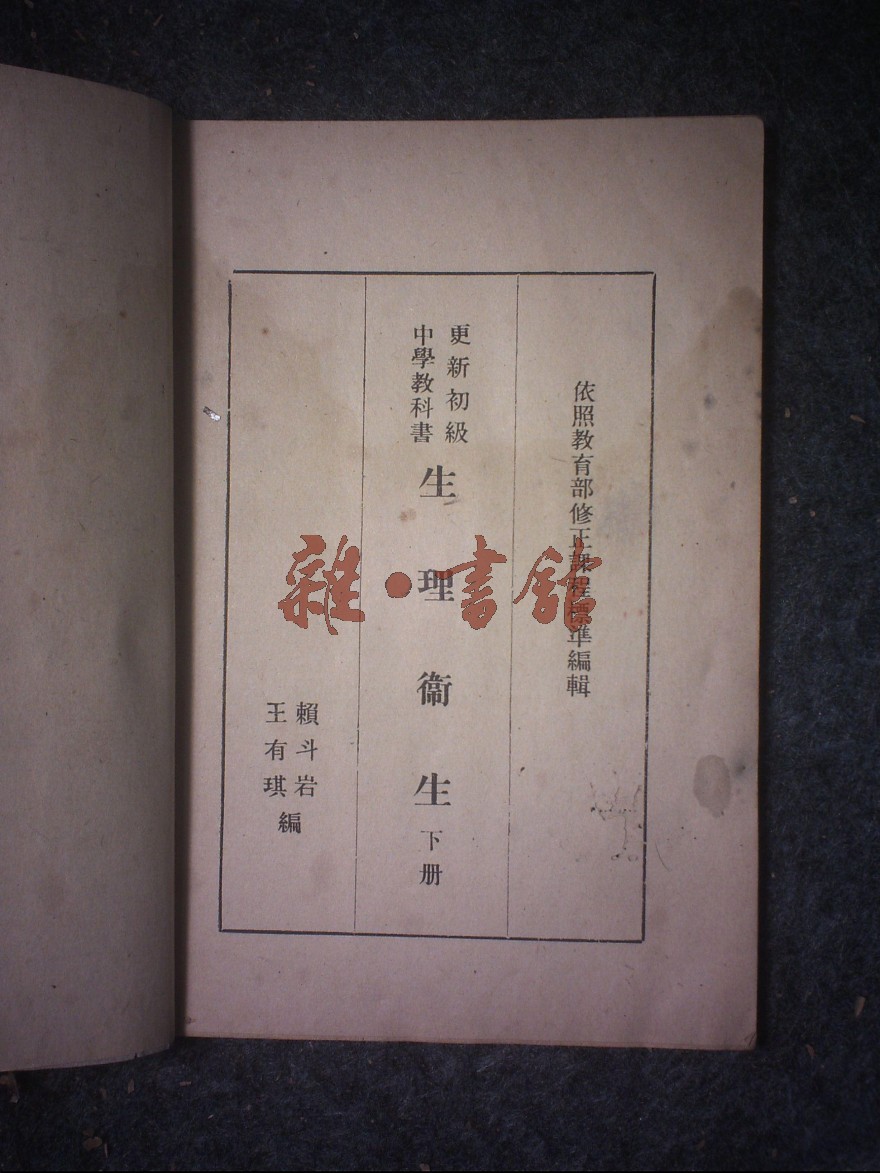 依照教育部修正課程標準編輯
更新初級
中學教科書
生理衞生 下册
賴斗岩
王有琪
編
雜·書館